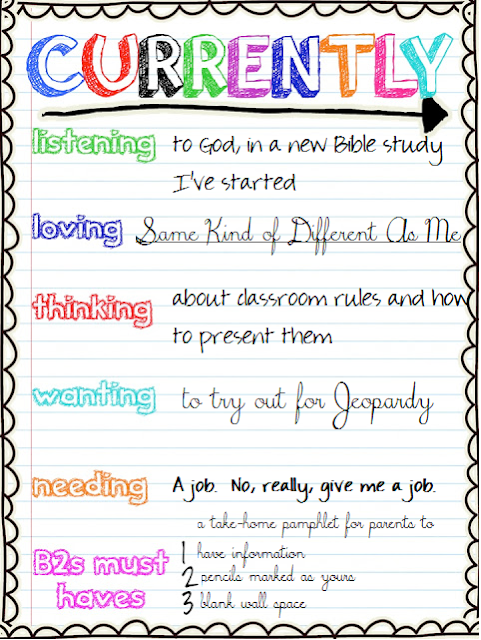 CURRENTLY
listening to God, in a new Bible study
I've started
loving Same Kind of Different As Me
thinking about classroom rules and how
to present them
wanting to try out for Jeopardy
needing A job. No, really, give me a job.
a take-home pamphlet for parents to
B2s must 1 have information
2 pencils marked as yours
haves 3 blank wall space